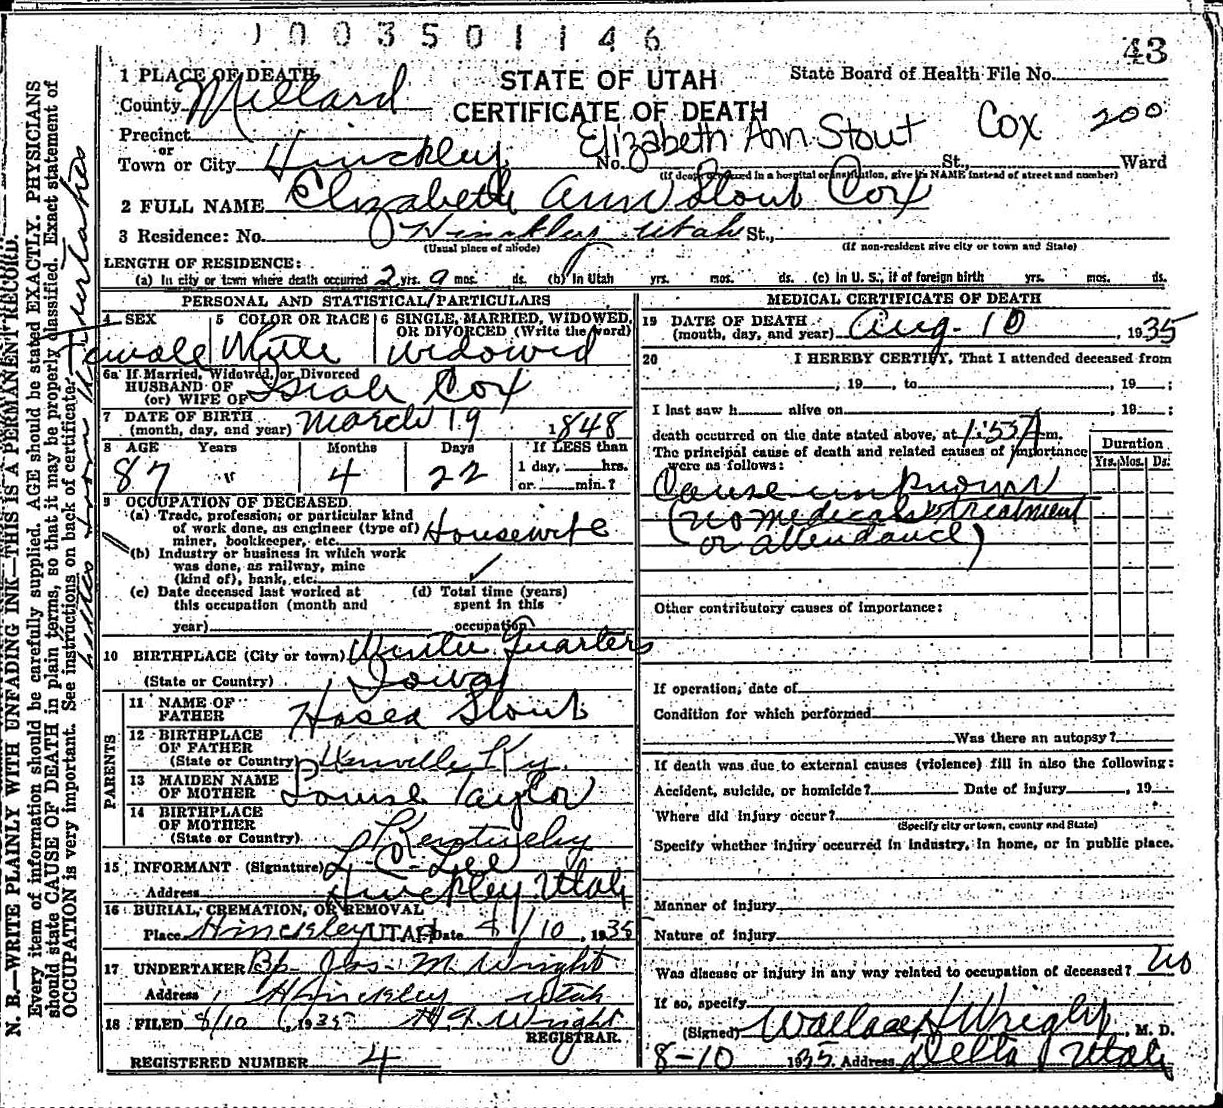 1003501146
43
1 PLACE OF DEATH
STATE OF UTAH
State Board of Health File No.
County Millard
CERTIFICATE OF DEATH
Precinct
or
Elizabeth Ann Stout Cox 200
Town or City Hinckley No. St., Ward
(If death occurred in a hospital or institution, give its NAME instead of street and number)
2 FULL NAME Elizabeth Ann Stout Cox
3 Residence: No. Hinckley Utah St.,
(Usual place of abode) (If non-resident give city or town and State)
LENGTH OF RESIDENCE:
(a) In city or town where death occurred 2 yrs. 9 mos. ds. (b) In Utah yrs. mos. ds. (c) In U. S., if of foreign birth yrs. mos. ds.
PERSONAL AND STATISTICAL PARTICULARS
4 SEX
Female
5 COLOR OR RACE
White
6 SINGLE, MARRIED, WIDOWED, OR DIVORCED (Write the word)
Widowed
6a If Married, Widowed, or Divorced
HUSBAND OF
(or) WIFE OF Isiah Cox
7 DATE OF BIRTH
(month, day, and year) March 19 1848
8 AGE Years Months Days If LESS than
87 4 22 1 day, hrs.
or min.?
9 OCCUPATION OF DECEASED
(a) Trade, profession, or particular kind
of work done, as engineer (type of)
miner, bookkeeper, etc. Housewife
(b) Industry or business in which work
was done, as railway, mine
(kind of), bank, etc. ✓
(c) Date deceased last worked at
this occupation (month and
year)
(d) Total time (years)
spent in this
occupation
10 BIRTHPLACE (City or town) Winter Quarters
(State or Country) Iowa
PARENTS
11 NAME OF
FATHER Hosea Stout
12 BIRTHPLACE
OF FATHER
(State or Country) Ky.
13 MAIDEN NAME
OF MOTHER Louise Taylor
14 BIRTHPLACE
OF MOTHER
(State or Country) Kentucky
15 INFORMANT (Signature) L. C. Lee
Address Hinckley Utah
16 BURIAL, CREMATION, OR REMOVAL
Place Hinckley UTAH Date 8/10, 1935
17 UNDERTAKER Bp. Jos. M. Wright
Address Hinckley Utah
18 FILED 8/10, 1935 Wright
REGISTRAR.
REGISTERED NUMBER 4
MEDICAL CERTIFICATE OF DEATH
19 DATE OF DEATH
(month, day, and year) Aug. 10, 1935
20 I HEREBY CERTIFY, That I attended deceased from
, 19 , to , 19 ;
I last saw h alive on , 19 ;
death occurred on the date stated above, at 1:55 A m.
The principal cause of death and related causes of importance
were as follows:
Duration
Yrs. Mos. Ds.
Cause unknown
(no medical treatment
or attendance)
Other contributory causes of importance:
If operation, date of
Condition for which performed
Was there an autopsy?
If death was due to external causes (violence) fill in also the following:
Accident, suicide, or homicide? Date of injury , 19
Where did injury occur?
(Specify city or town, county and State)
Specify whether injury occurred in industry, in home, or in public place.
Manner of injury
Nature of injury
Was disease or injury in any way related to occupation of deceased? no
If so, specify
(Signed) Wallace Wright, M. D.
8-10 1935. Address Delta Utah
N. B.—WRITE PLAINLY WITH UNFADING INK—THIS IS A PERMANENT RECORD.
Every item of information should be carefully supplied. AGE should be stated EXACTLY. PHYSICIANS
should state CAUSE OF DEATH in plain terms, so that it may be properly classified. Exact statement of
OCCUPATION is very important. See instructions on back of certificate.